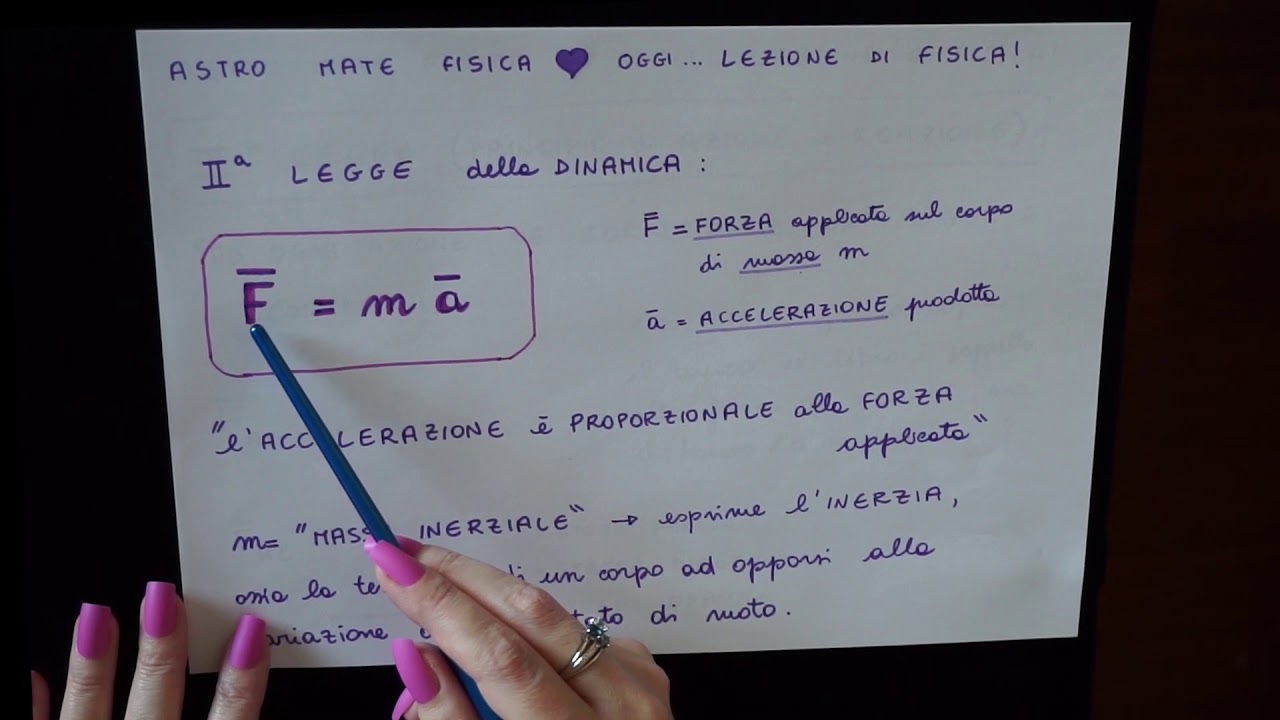 ASTRO MATE FISICA 💜 OGGI... LEZIONE DI FISICA!
IIª LEGGE della DINAMICA:
F̅ = m a̅
F̅ = FORZA applicata sul corpo
di massa m
a̅ = ACCELERAZIONE prodotta
"l'ACCELERAZIONE è PROPORZIONALE alla FORZA
applicata"
m = "MASS INERZIALE" → esprime l'INERZIA,
ossia la te di un corpo ad opporsi alla
ariazione tato di moto.